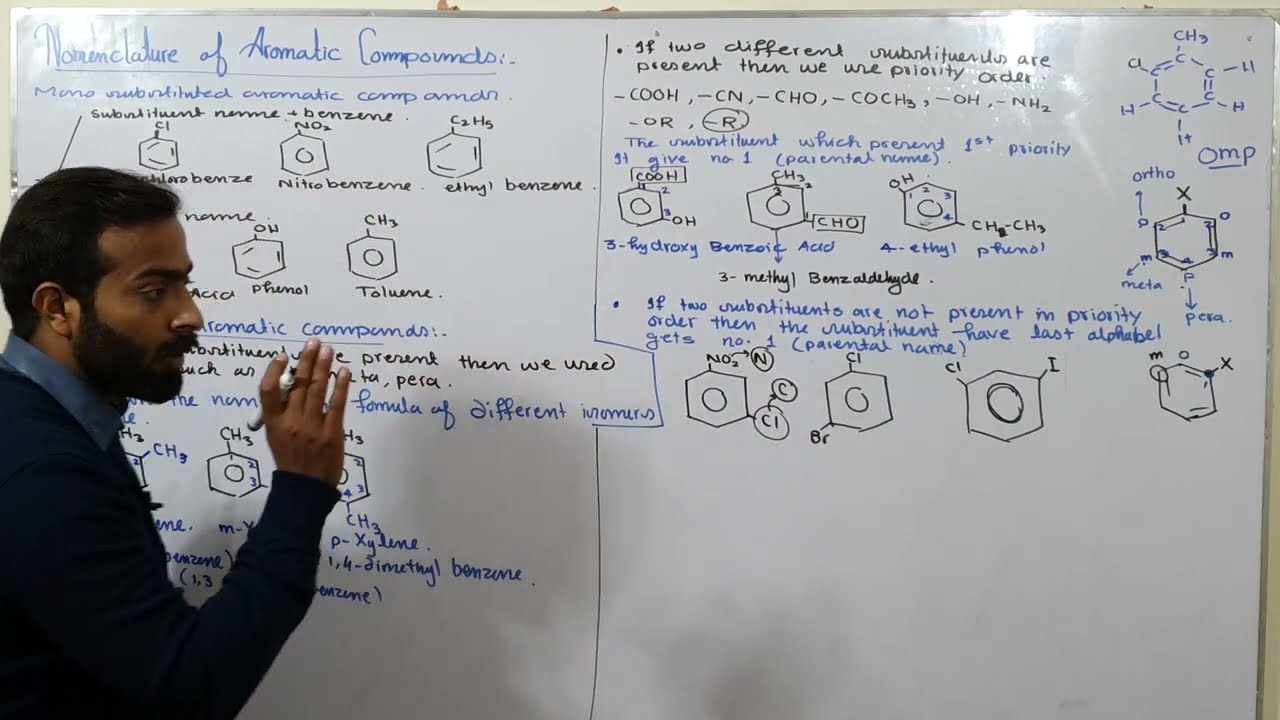 Nomenclature of Aromatic Compounds:-
Mono substituted aromatic compounds.
Substituent name + benzene.
Cl
NO₂
C₂H₅
Nitrobenzene.
ethyl benzene.
name.
OH
CH₃
Acid
Phenol
Toluene.
aromatic compounds:-
present then we used
such as
, pera.
the
formula of different isomers
CH₃
2
CH₃
2
3
2
3
4
CH₃
p-Xylene.
benzene)
1,4-dimethyl benzene.
(1,3
benzene)
• If two different substituents are
present then we use priority order.
-COOH, -CN, -CHO, -COCH₃, -OH, -NH₂
-OR, -R
The substituent which present 1st priority
It give no 1 (parental name).
COOH
2
3
OH
CH₃
3
2
1
CHO
OH
1
2
3
4
CH₂-CH₃
3-hydroxy Benzoic Acid
4-ethyl phenol
3-methyl Benzaldehyde.
• If two substituents are not present in priority
order then the substituent have last alphabel
gets no. 1 (parental name)
NO₂→N
C
Cl
Cl
Br
Cl
I
m
O
X
CH₃
Cl
C
C
C
C
C
C
H
H
H
H
Omp
ortho
X
O
2
2
m
3
m
4
P
meta
pera.